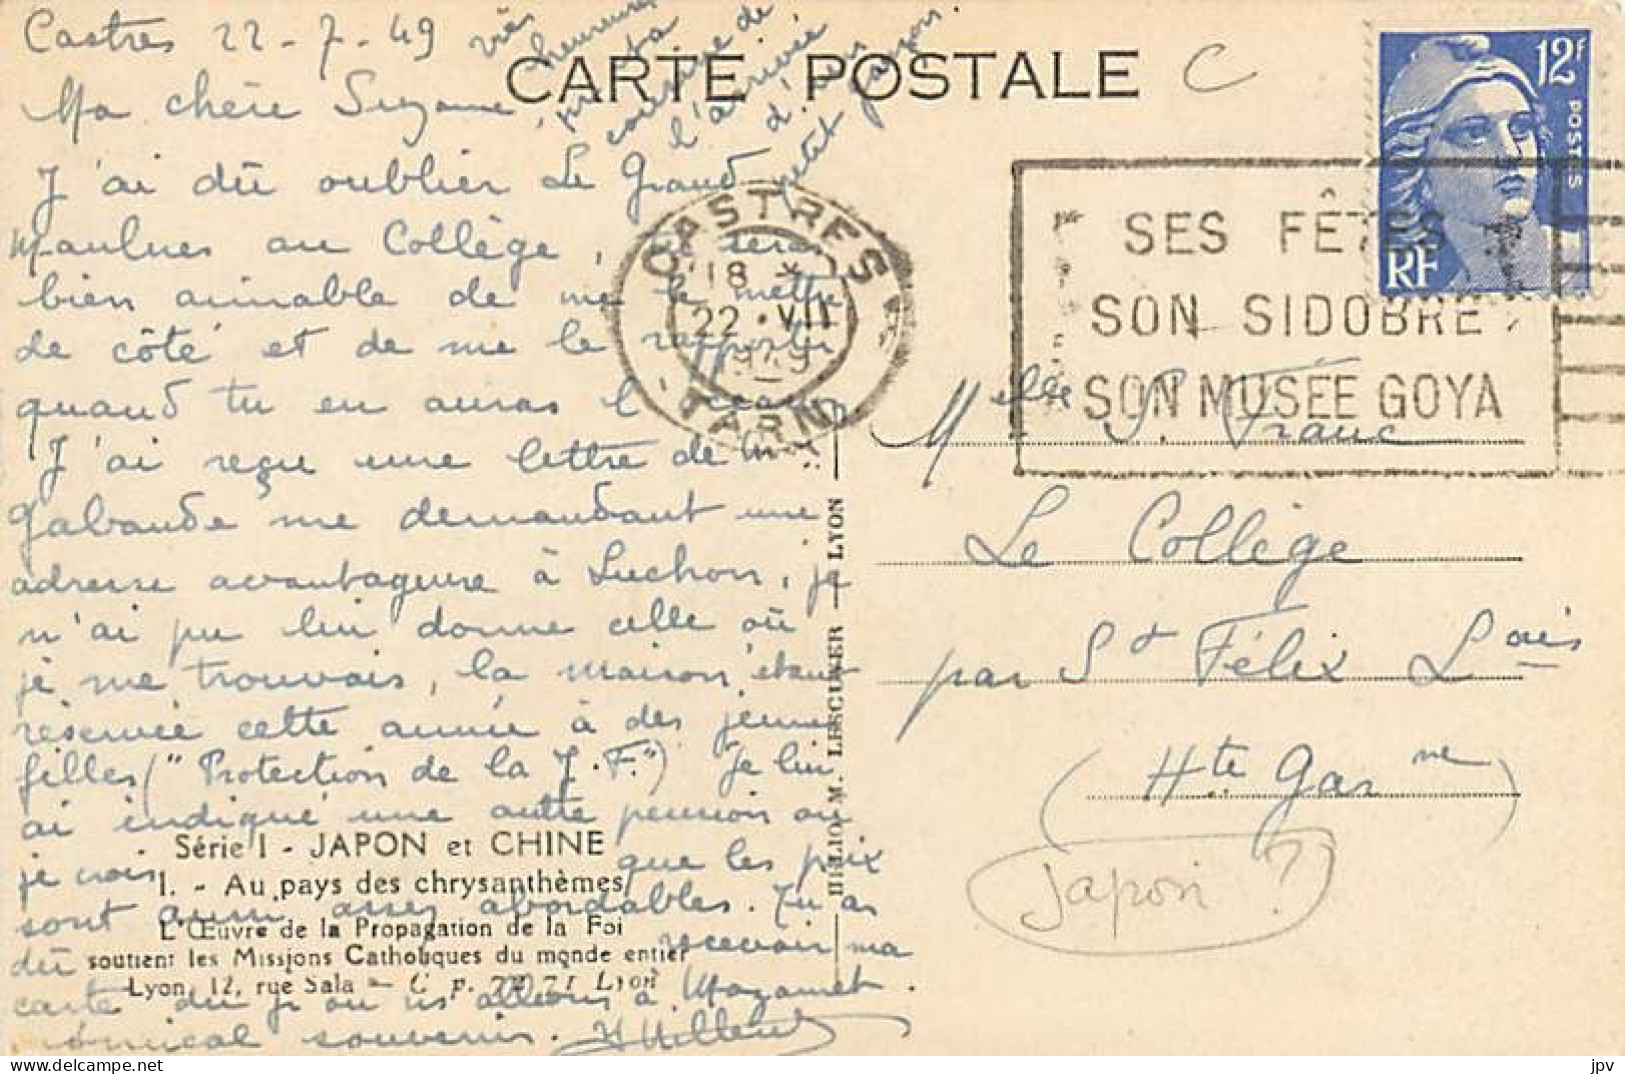 CARTE POSTALE
C
12F
POSTES
RF
CASTRES
18 *
22 VII
1949
TARN
SES FÊTES
SON SIDOBRE
SON MUSÉE GOYA
Castres 22-7-49
Ma chère Suzanne,
J'ai dû oublier Le Grand
Maulnes au Collège, tu seras
bien aimable de me le mettre
de côté et de me le rapporter
quand tu en auras l'
J'ai reçu une lettre de
Gabaude me demandant une
adresse avantageuse à Luchon, je
n'ai pu lui donne celle où
je me trouvais, la maison étant
réservée cette année à des jeunes
filles ("Protection de la J.F.") Je lui
ai indiqué une autre pension où
je crois que les prix
sont aussi assez abordables. Tu as
dû recevoir ma
carte du j où ns allions à Mazamet.
Amical souvenir.
très heureuse
cousine de
l'arrivée
d'un
petit garçon
Melle S. Franc
Le Collège
par St Félix Lais
(Hte Garne)
Japon ?
Série I - JAPON et CHINE
1. - Au pays des chrysanthèmes
L'Œuvre de la Propagation de la Foi
soutient les Missions Catholiques du monde entier
Lyon, 12, rue Sala - C p. Lyon
HÉLIO M. LESCUYER — LYON
delcampe.net
jpv